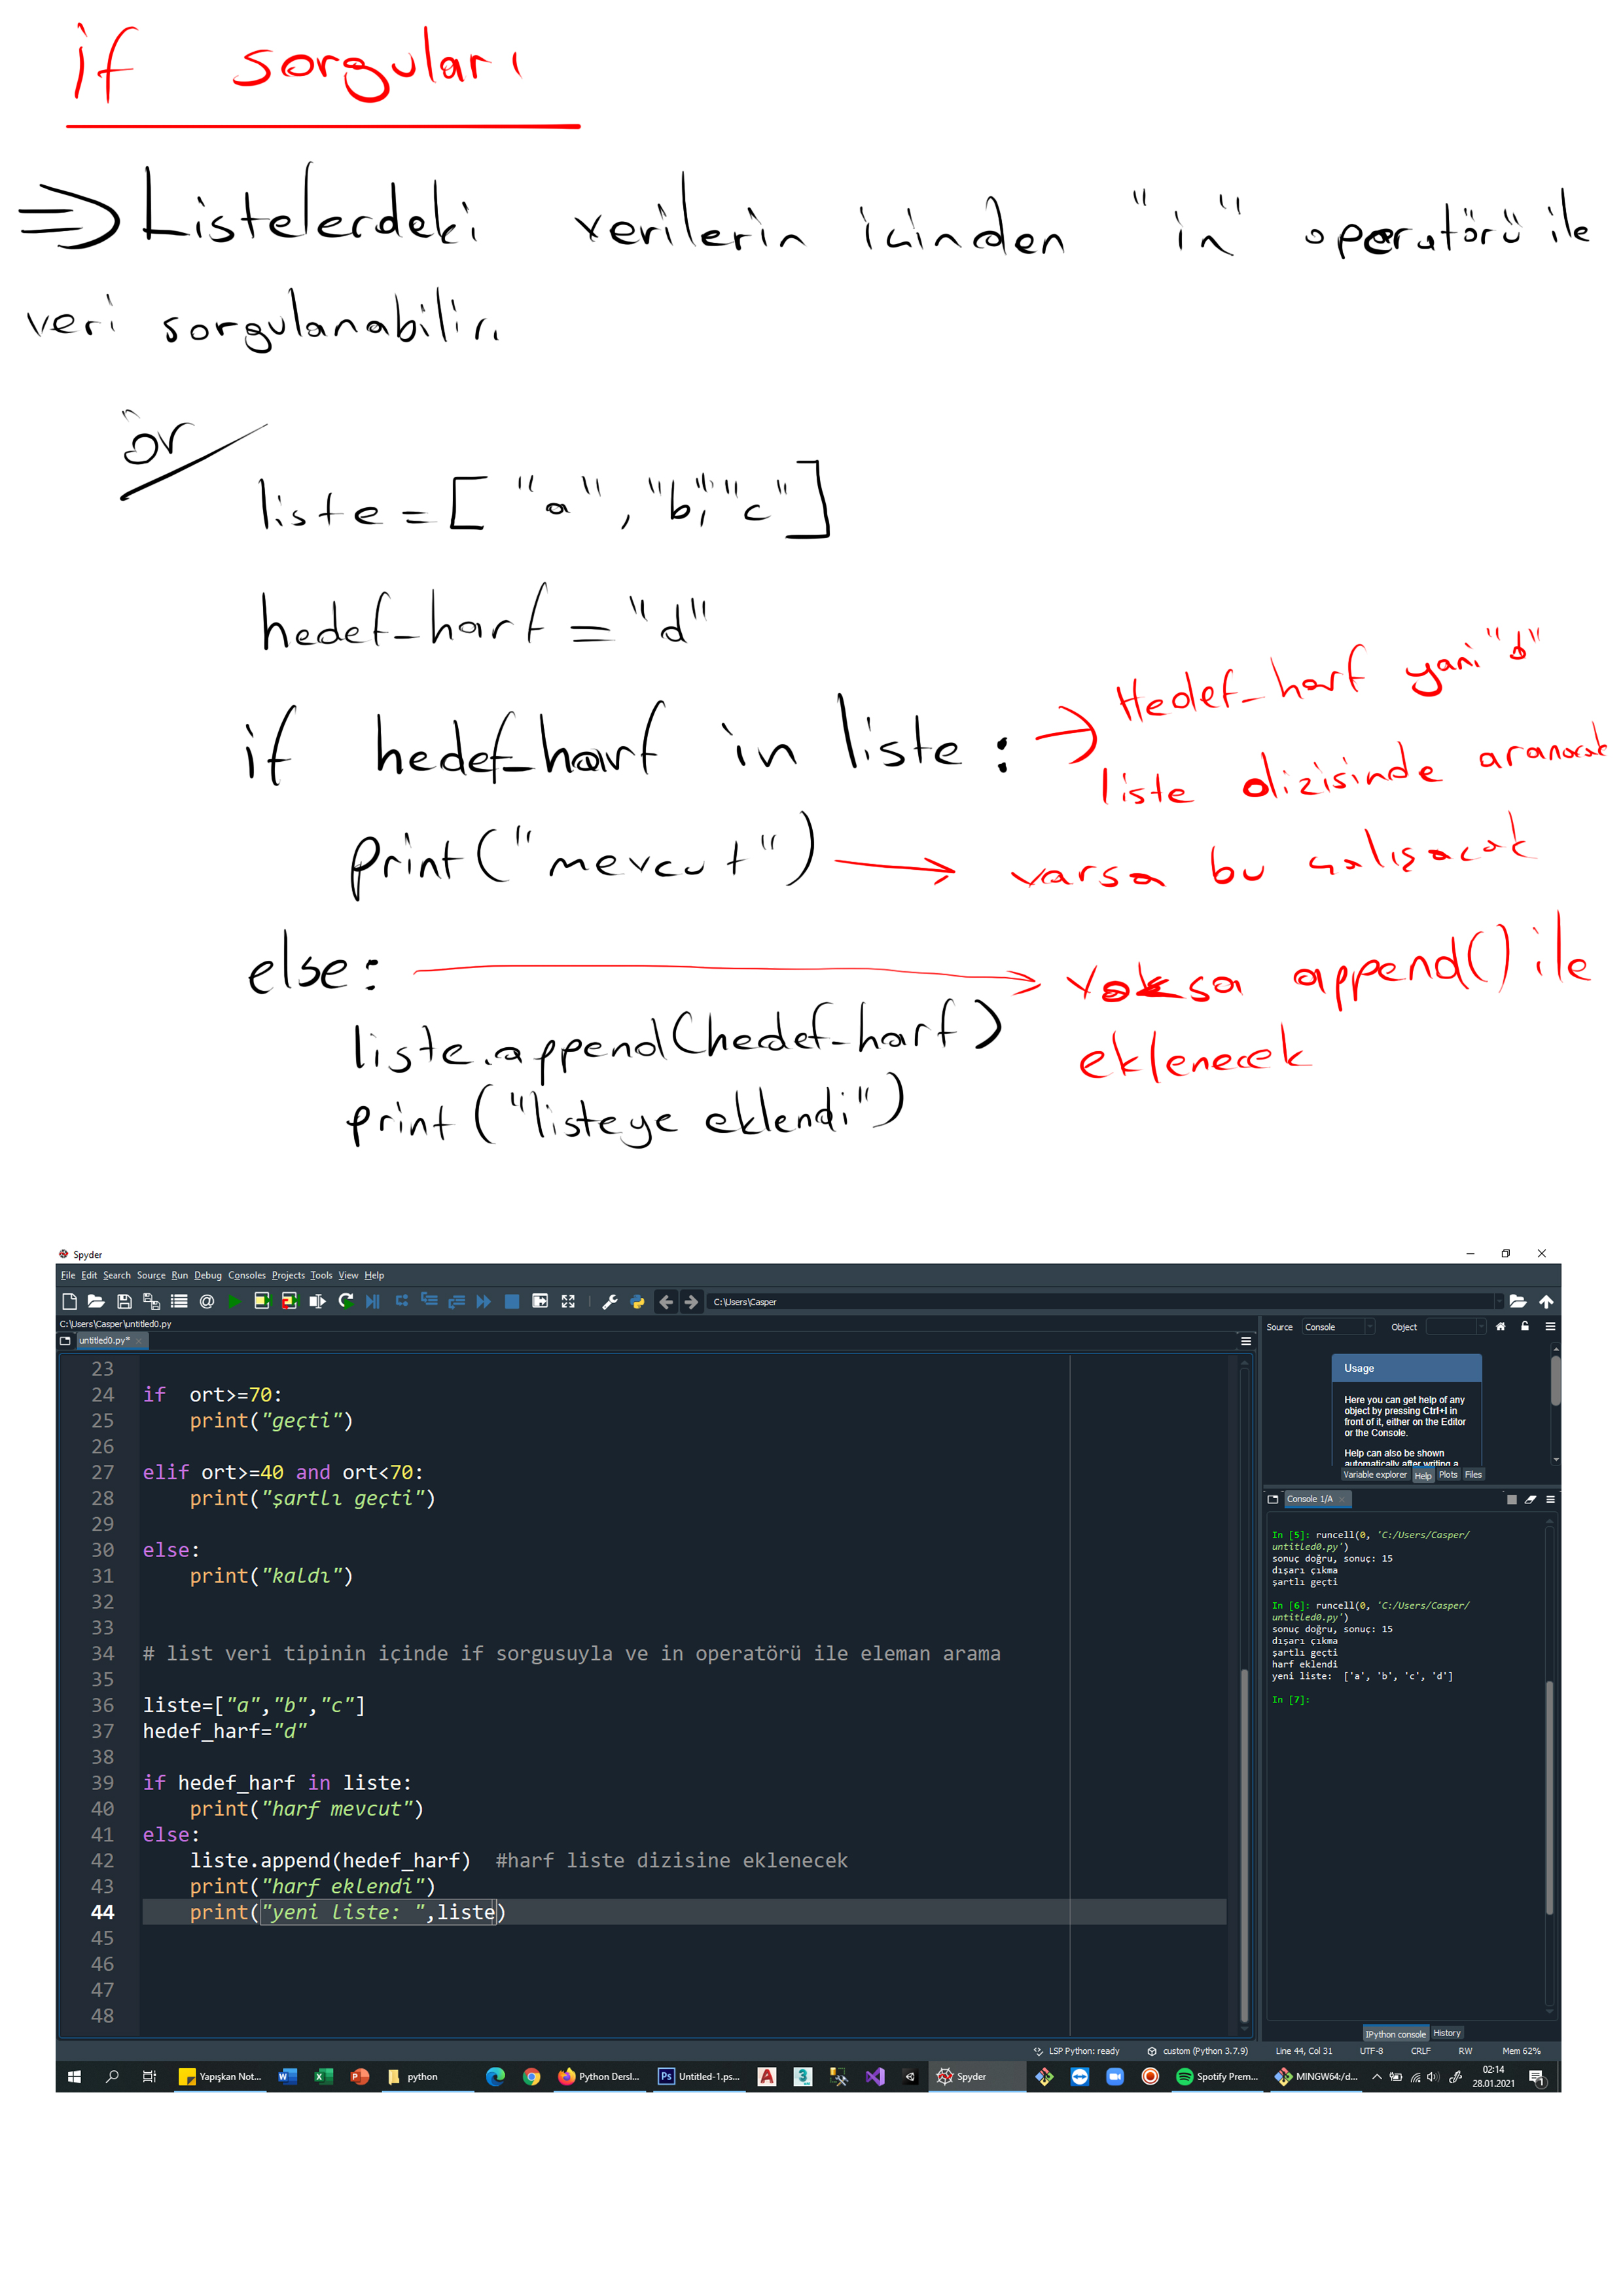 if sorguları
⇒ Listelerdeki verilerin içinden "in" operatörü ile
veri sorgulanabilir.
ör
liste = [ "a", "b", "c" ]
hedef_harf = "d"
if hedef_harf in liste : → Hedef_harf yani "d"
liste dizisinde aranacak
print("mevcut") → varsa bu çalışacak
else: → yoksa append() ile
eklenecek
liste.append(hedef_harf)
print("listeye eklendi")
Spyder
File Edit Search Source Run Debug Consoles Projects Tools View Help
C:\Users\Casper
C:\Users\Casper\untitled0.py
untitled0.py*
23
24 if  ort>=70:
25     print("geçti")
26
27 elif ort>=40 and ort<70:
28     print("şartlı geçti")
29
30 else:
31     print("kaldı")
32
33
34 # list veri tipinin içinde if sorgusuyla ve in operatörü ile eleman arama
35
36 liste=["a","b","c"]
37 hedef_harf="d"
38
39 if hedef_harf in liste:
40     print("harf mevcut")
41 else:
42     liste.append(hedef_harf)  #harf liste dizisine eklenecek
43     print("harf eklendi")
44     print("yeni liste: ",liste)
45
46
47
48
Source Console Object
Usage
Here you can get help of any
object by pressing Ctrl+I in
front of it, either on the Editor
or the Console.
Help can also be shown
automatically after writing a
Variable explorer Help Plots Files
Console 1/A
In [5]: runcell(0, 'C:/Users/Casper/
untitled0.py')
sonuç doğru, sonuç: 15
dışarı çıkma
şartlı geçti
In [6]: runcell(0, 'C:/Users/Casper/
untitled0.py')
sonuç doğru, sonuç: 15
dışarı çıkma
şartlı geçti
harf eklendi
yeni liste:  ['a', 'b', 'c', 'd']
In [7]:
IPython console History
LSP Python: ready custom (Python 3.7.9) Line 44, Col 31 UTF-8 CRLF RW Mem 62%
Yapışkan Not... python Python Dersl... Untitled-1.ps... Spyder Spotify Prem... MINGW64:/d... 02:14
28.01.2021